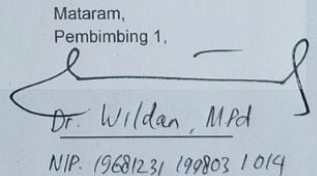 Mataram,
Pembimbing 1,
Dr. Wildan, MPd
NIP. 19681231 199803 1 014